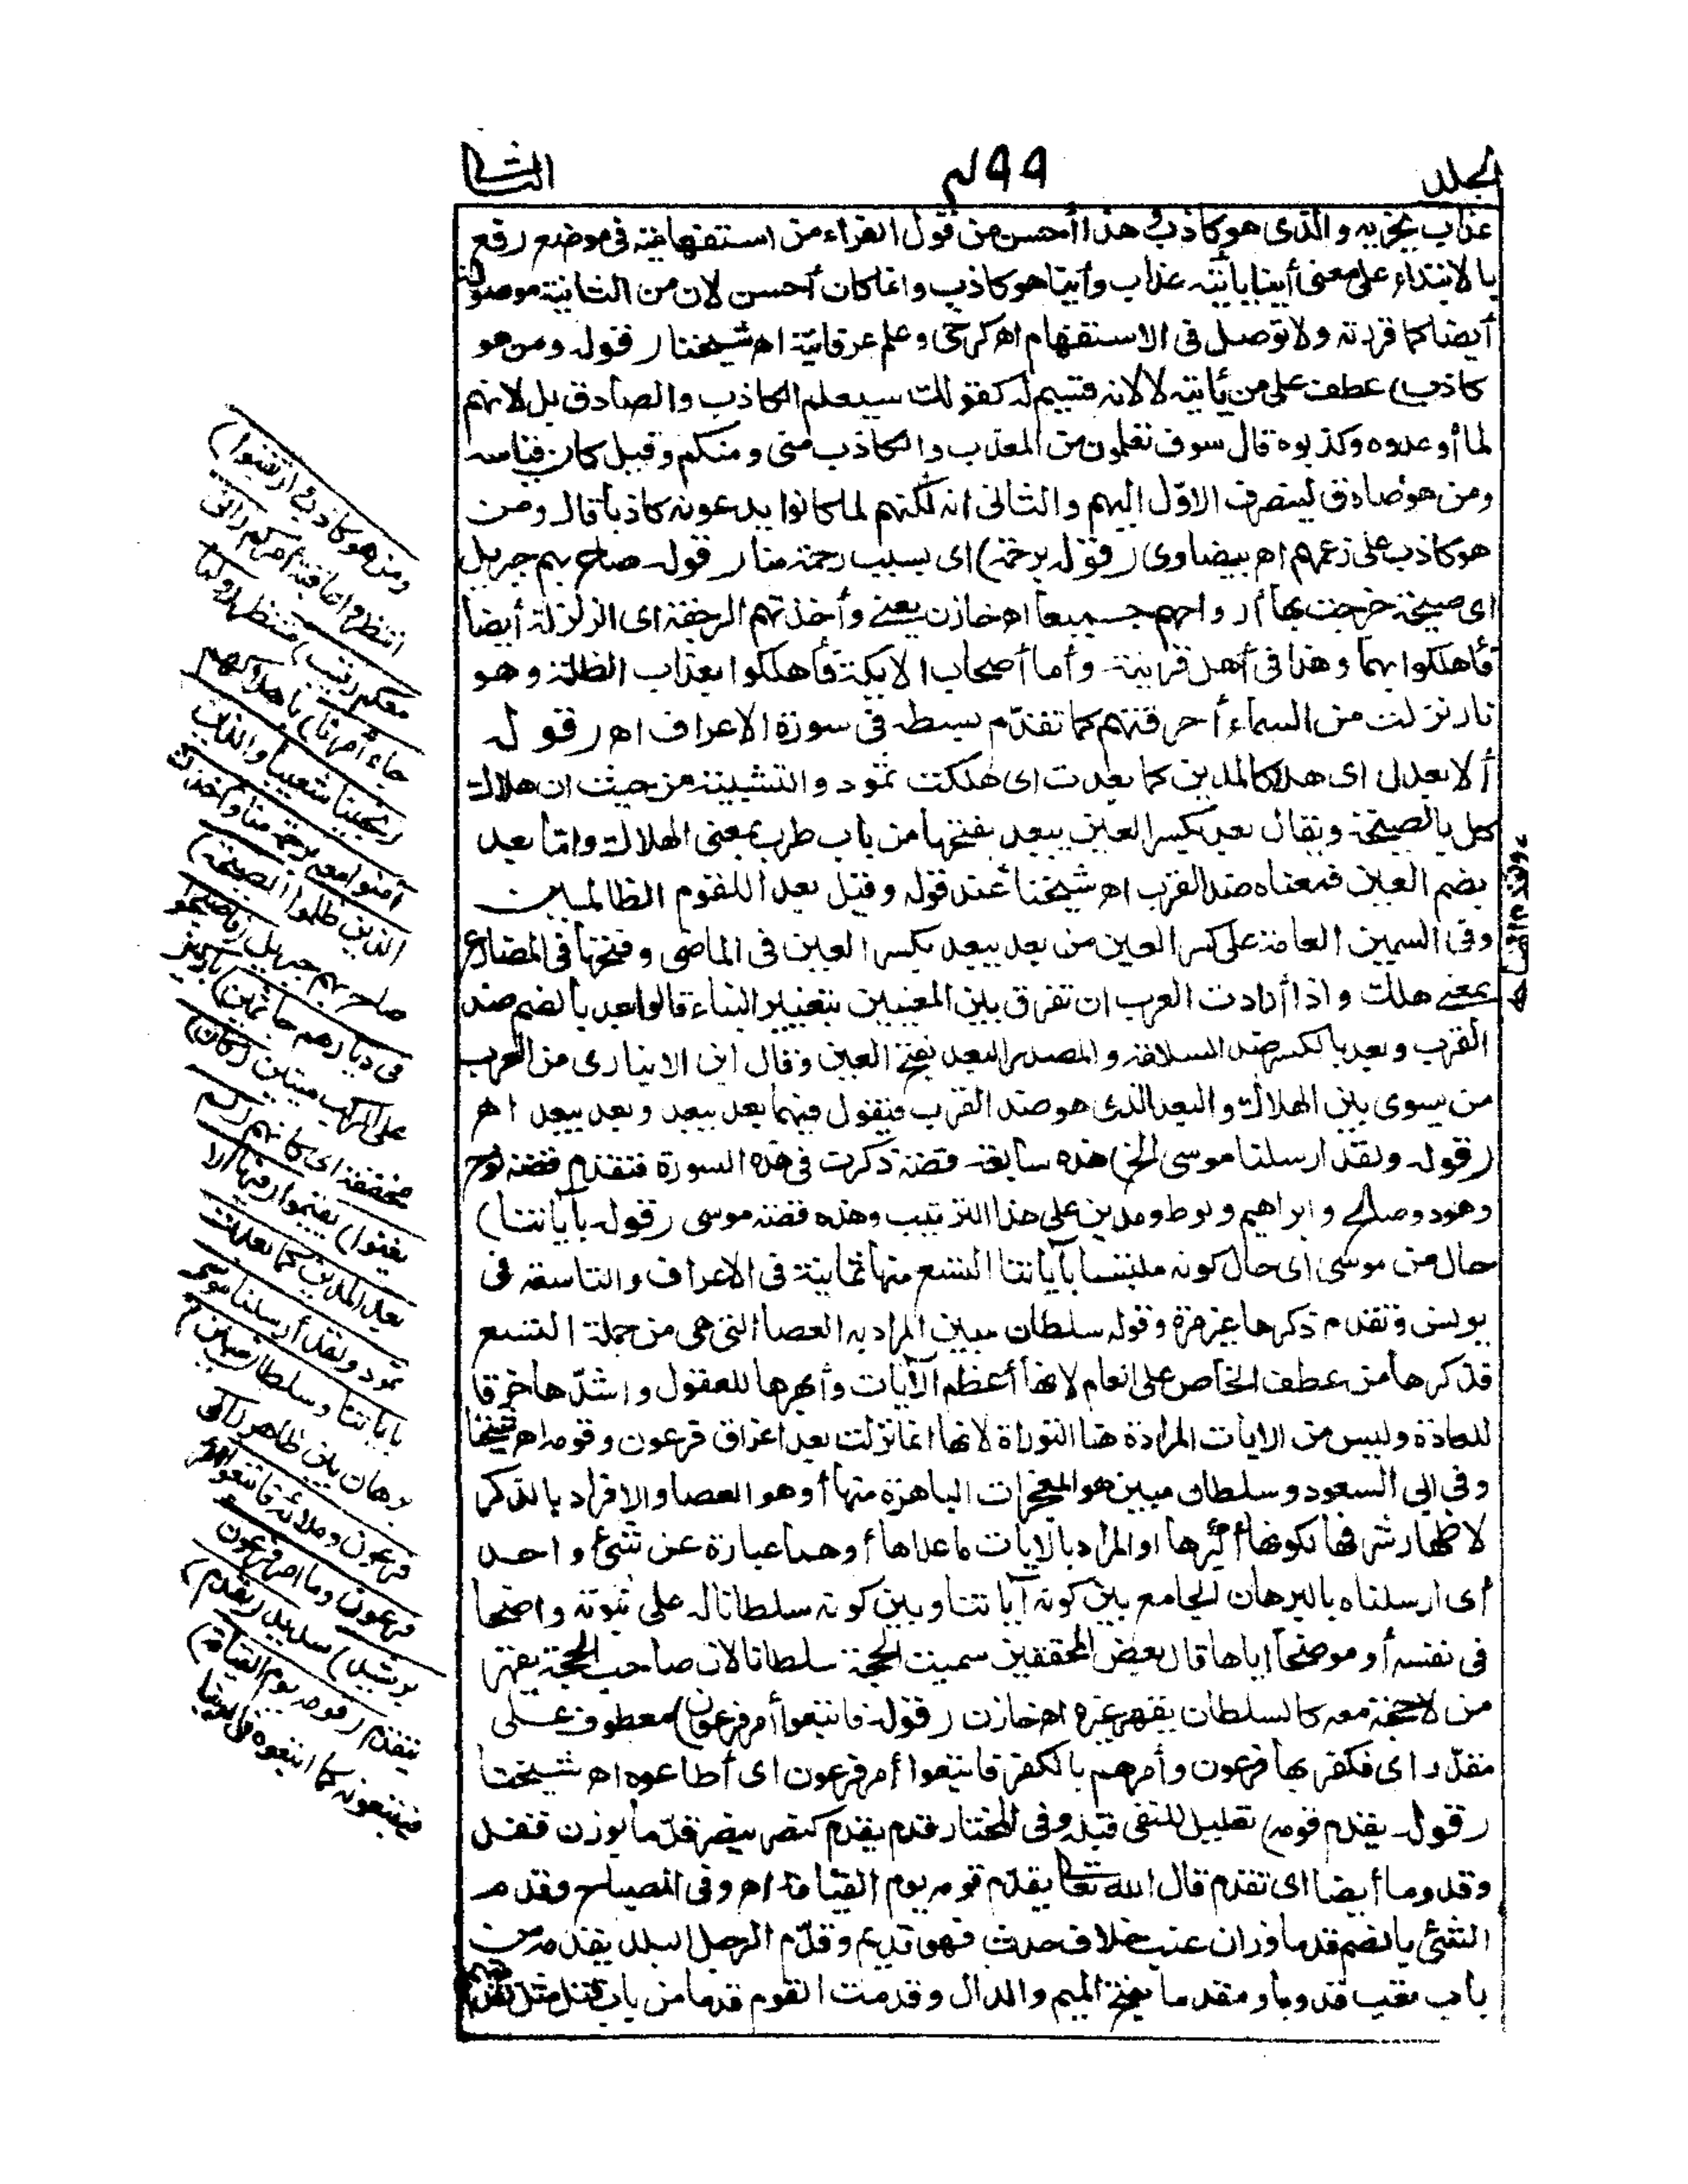 المجلد
٤٩٩
الثانى
عذاب يخزيه والذى هو كاذب هذا أحسن من قول الفراء من استفهامية فى موضع رفع
بالابتداء على معنى أينا يأتيه عذاب وأينا هو كاذب وانما كان أحسن لان من الثانية موصولة
أيضا كما قررته ولا توصل فى الاستفهام اه كرخى وعلم عرفانية اه شيخنا (قوله ومن هو
كاذب) عطف على من يأتيه لا لانه قسيم له كقولك سيعلم الكاذب والصادق بل لانهم
لما أوعدوه وكذبوه قال سوف تعلمون من المعذب والكاذب منى ومنكم وقيل كان قياسه
ومن هو صادق لينصرف الاوّل اليهم والثانى اليه لكنهم لما كانوا يدعونه كاذبا قال ومن
هو كاذب على زعمهم اه بيضاوى (قوله برحمة) اى بسبب رحمة منا (قوله صاح بهم جبريل
اى صيحة خرجت بها أرواحهم جميعا اه خازن يعنى وأخذتهم الرجفة اى الزلزلة أيضا
فأهلكوا بهما وهذا فى أهل قريته وأما أصحاب الايكة فأهلكوا بعذاب الظلة وهو
نار نزلت من السماء أحرقتهم كما تقدّم بسطه فى سورة الاعراف اه (قوله
ألا بعدا) اى هلاكا لمدين كما بعدت اى هلكت ثمود والتشبيه من حيث ان هلاك
كل بالصيحة ويقال بعد بكسر العين يبعد بفتحها من باب طرب بمعنى الهلاك وامّا بعد
بضم العين فمعناه ضد القرب اه شيخنا عند قوله وقيل بعدا للقوم الظالمين
وفى السمين العامة على كسر العين من بعد يبعد بكسر العين فى الماضى وفتحها فى المضارع
بمعنى هلك واذا أرادت العرب ان تفرق بين المعنيين بتغيير البناء قالوا بعد بالضم ضد
القرب وبعد بالكسر ضد السلامة والمصدر البعد بفتح العين وقال ابن الانبارى من العرب
من يسوى بين الهلاك والبعد الذى هو ضد القرب فيقول فيهما بعد يبعد وبعد يبعد اه
(قوله ولقد ارسلنا موسى الخ) هذه سابعة قصة ذكرت فى هذه السورة فتقدم قصة نوح
وهود وصالح وابراهيم ولوط ومدين على هذا الترتيب وهذه قصة موسى (قوله بآياتنا)
حال من موسى اى حال كونه ملتبسا بآياتنا التسع منها ثمانية فى الاعراف والتاسعة فى
يونس وتقدم ذكرها غير مرة وقوله سلطان مبين المراد به العصا التى هى من جملة التسع
فذكرها من عطف الخاص على العام لانها أعظم الآيات وأبهرها للعقول واشدّها خرقا
للعادة وليس من الايات المرادة هنا التوراة لانها انما نزلت بعد اغراق فرعون وقومه اه شيخنا
وفى ابى السعود وسلطان مبين هو المعجزات الباهرة منها أو هو العصا والافراد بالذكر
لاظهار شرفها لكونها أبهرها او المراد بالايات ما عداها أو هما عبارة عن شئ واحد
أى ارسلناه بالبرهان الجامع بين كونه آياتنا وبين كونه سلطانا له على نبوته واضحا
فى نفسه أو موضحا اياها قال بعض المحققين سميت الحجة سلطانا لان صاحب الحجة يقهر
من لا حجة معه كالسلطان يقهر غيره اه خازن (قوله فاتبعوا أمر فرعون) معطوف على
مقدّر اى فكفر بها فرعون وأمرهم بالكفر فاتبعوا أمر فرعون اى أطاعوه اه شيخنا
(قوله يقدم قومه) تعليل للنفى قبله وفى المختار قدم يقدم كنصر ينصر قدما بوزن قفل
وقدوما أيضا اى تقدم قال الله تعالى يقدم قومه يوم القيامة اه وفى المصباح وقدم
الشئ بالضم قدما وزان عنب خلاف حدث فهو قديم وقدم الرجل البلد يقدمه من
باب تعب قدوما ومقدما بفتح الميم والدال وقدمت القوم قدما من باب قتل مثل تقدمتهم
ومن هو كاذب وارتقبوا)
انتظروا عاقبة أمركم (انى
معكم رقيب) منتظر (ولما
جاء أمرنا) باهلاكهم
(نجينا شعيبا والذين
آمنوا معه برحمة منا وأخذت
الذين ظلموا الصيحة)
صاح بهم جبريل (فأصبحوا
فى ديارهم جاثمين) باركين
على الركب ميتين (كأن)
مخففة اى كأنهم (لم
يغنوا) يقيموا (فيها ألا
بعدا لمدين كما بعدت
ثمود ولقد أرسلنا موسى
بآياتنا وسلطان مبين)
برهان بين ظاهر (الى
فرعون وملائه فاتبعوا أمر
فرعون وما امر فرعون
برشيد) سديد (يقدم)
يتقدم (قومه يوم القيامة)
فيتبعونه كما اتبعوه فى الدنيا